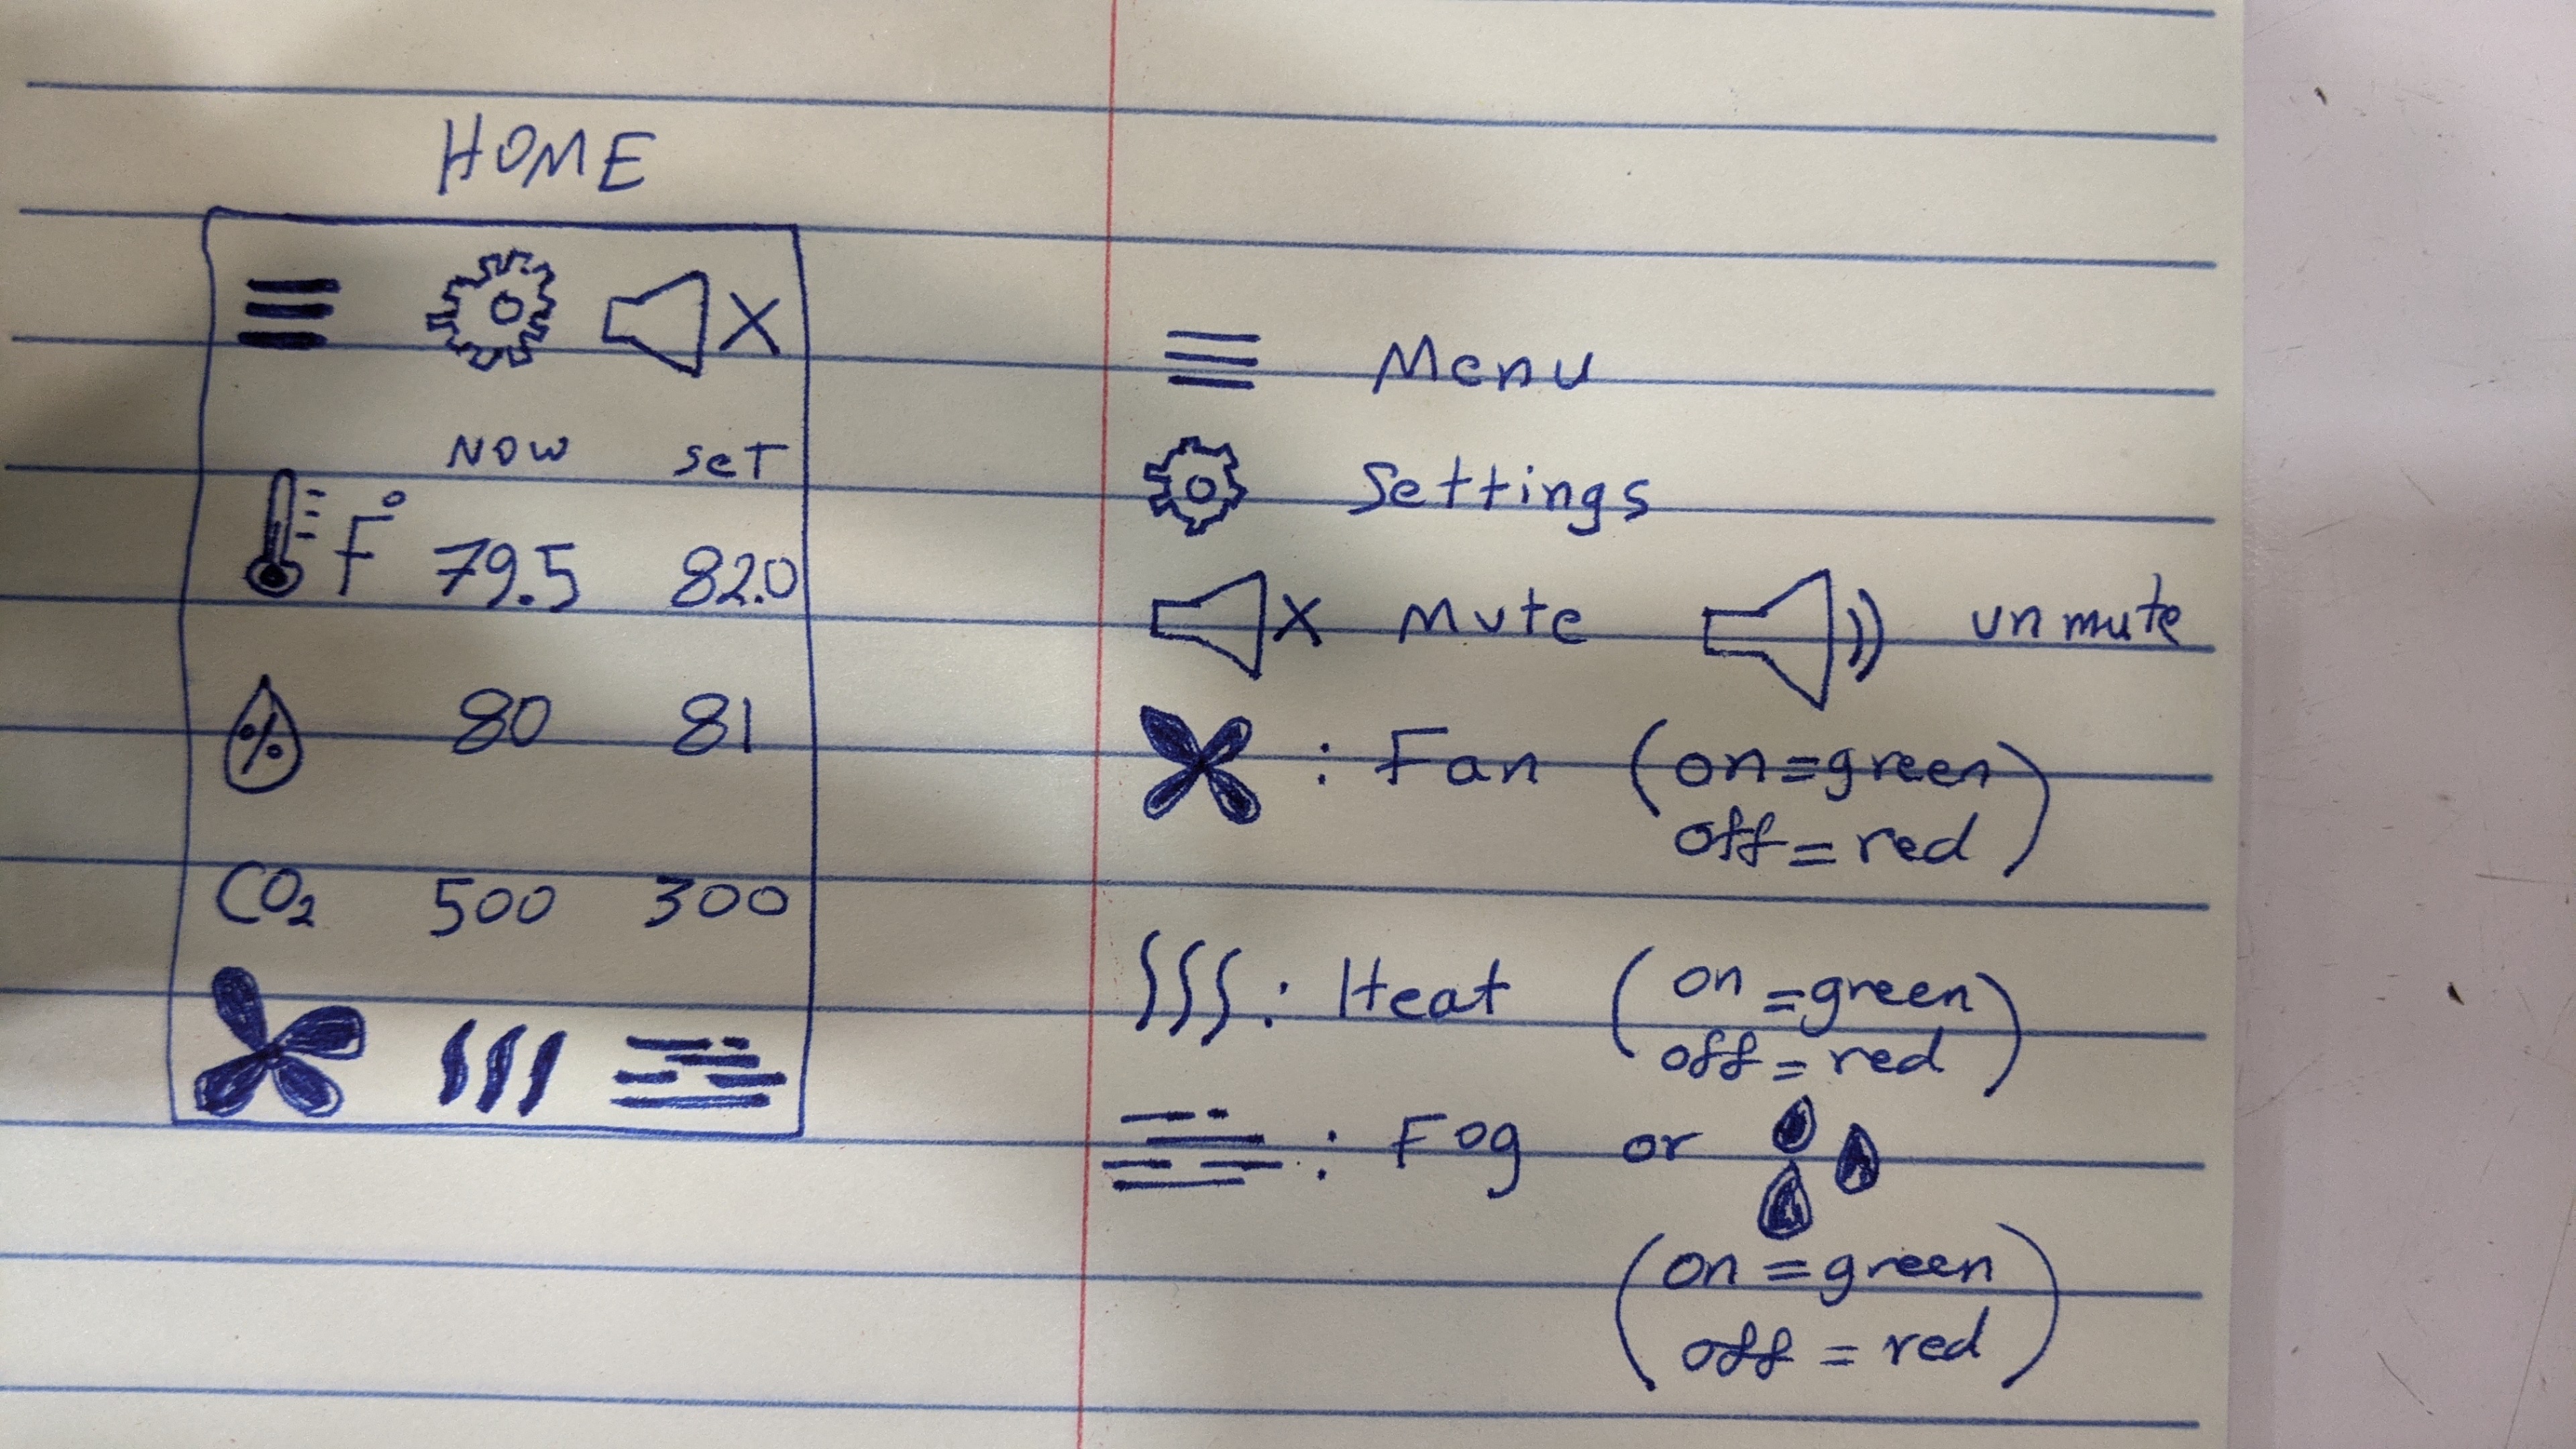 HOME
NOW SET
F° 79.5 82.0
% 80 81
CO₂ 500 300
Menu
Settings
X Mute unmute
: Fan (on=green
off=red)
: Heat (on=green
off=red)
: Fog or
(on=green
off=red)